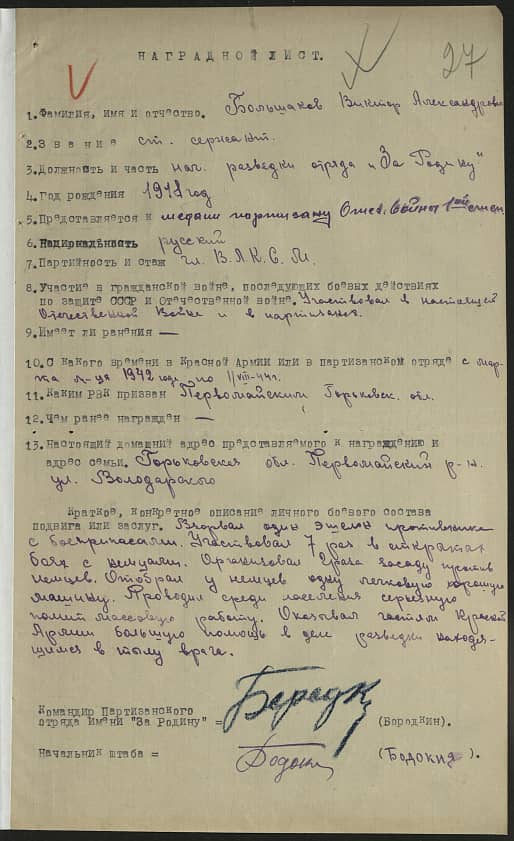 27
НАГРАДНОЙ ЛИСТ.
1.Фамилия, имя и отчество. Большаков Виктор Александрович
2.Звание ст. сержант.
3.Должность и часть нач. разведки отряда "За Родину"
4.Год рождения 1918 год
5.Представляется к медали партизану Отеч. Войны 1ой степен
6.Национальность русский
7.Партийность и стаж чл. ВЛКСМ.
8.Участие в гражданской войне, последующих боевых действиях
по защите СССР и Отечественной войне. Участвовал в настоящей
Отечественной Войне и в партизанах.
9.Имеет ли ранения —
10.С какого времени в Красной Армии или в партизанском отряде с мар-
та м-ца 1942 года по 11/VIII-44г.
11.Каким РВК призван Первомайским Горьковск. обл.
12.Чем ранее награжден —
13.Настоящий домашний адрес представляемого к награждению и
адрес семьи. Горьковская обл. Первомайский р-н.
ул. Володарского
Краткое, конкретное описание личного боевого состава
подвига или заслуг. Взорвал один эшелон противника
с боеприпасами. Участвовал 7 раз в открытых
боях с немцами. Организовал засаду против
немцев. Отобрал у немцев одну легковую хорошую
машину. Проводил среди населения серьезную
полит массовую работу. Оказывал частям Красной
Армии большую помощь в деле разведки находя-
щимся в тылу врага.
Командир Партизанского
отряда имени "За Родину" = (Бородкин).
Начальник штаба = (Бодокия).